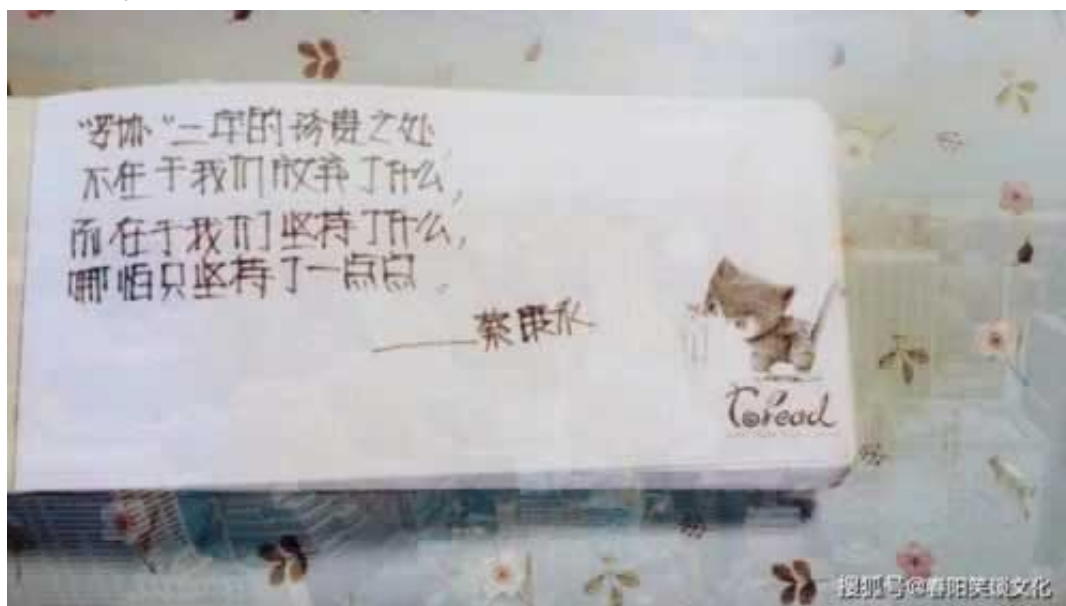 二字的珍贵之处
不在于我们放弃了什么,
而在于我们坚持了什么,
哪怕只坚持了一点点。
——蔡康永
Coread
搜狐号@春阳笑谈文化